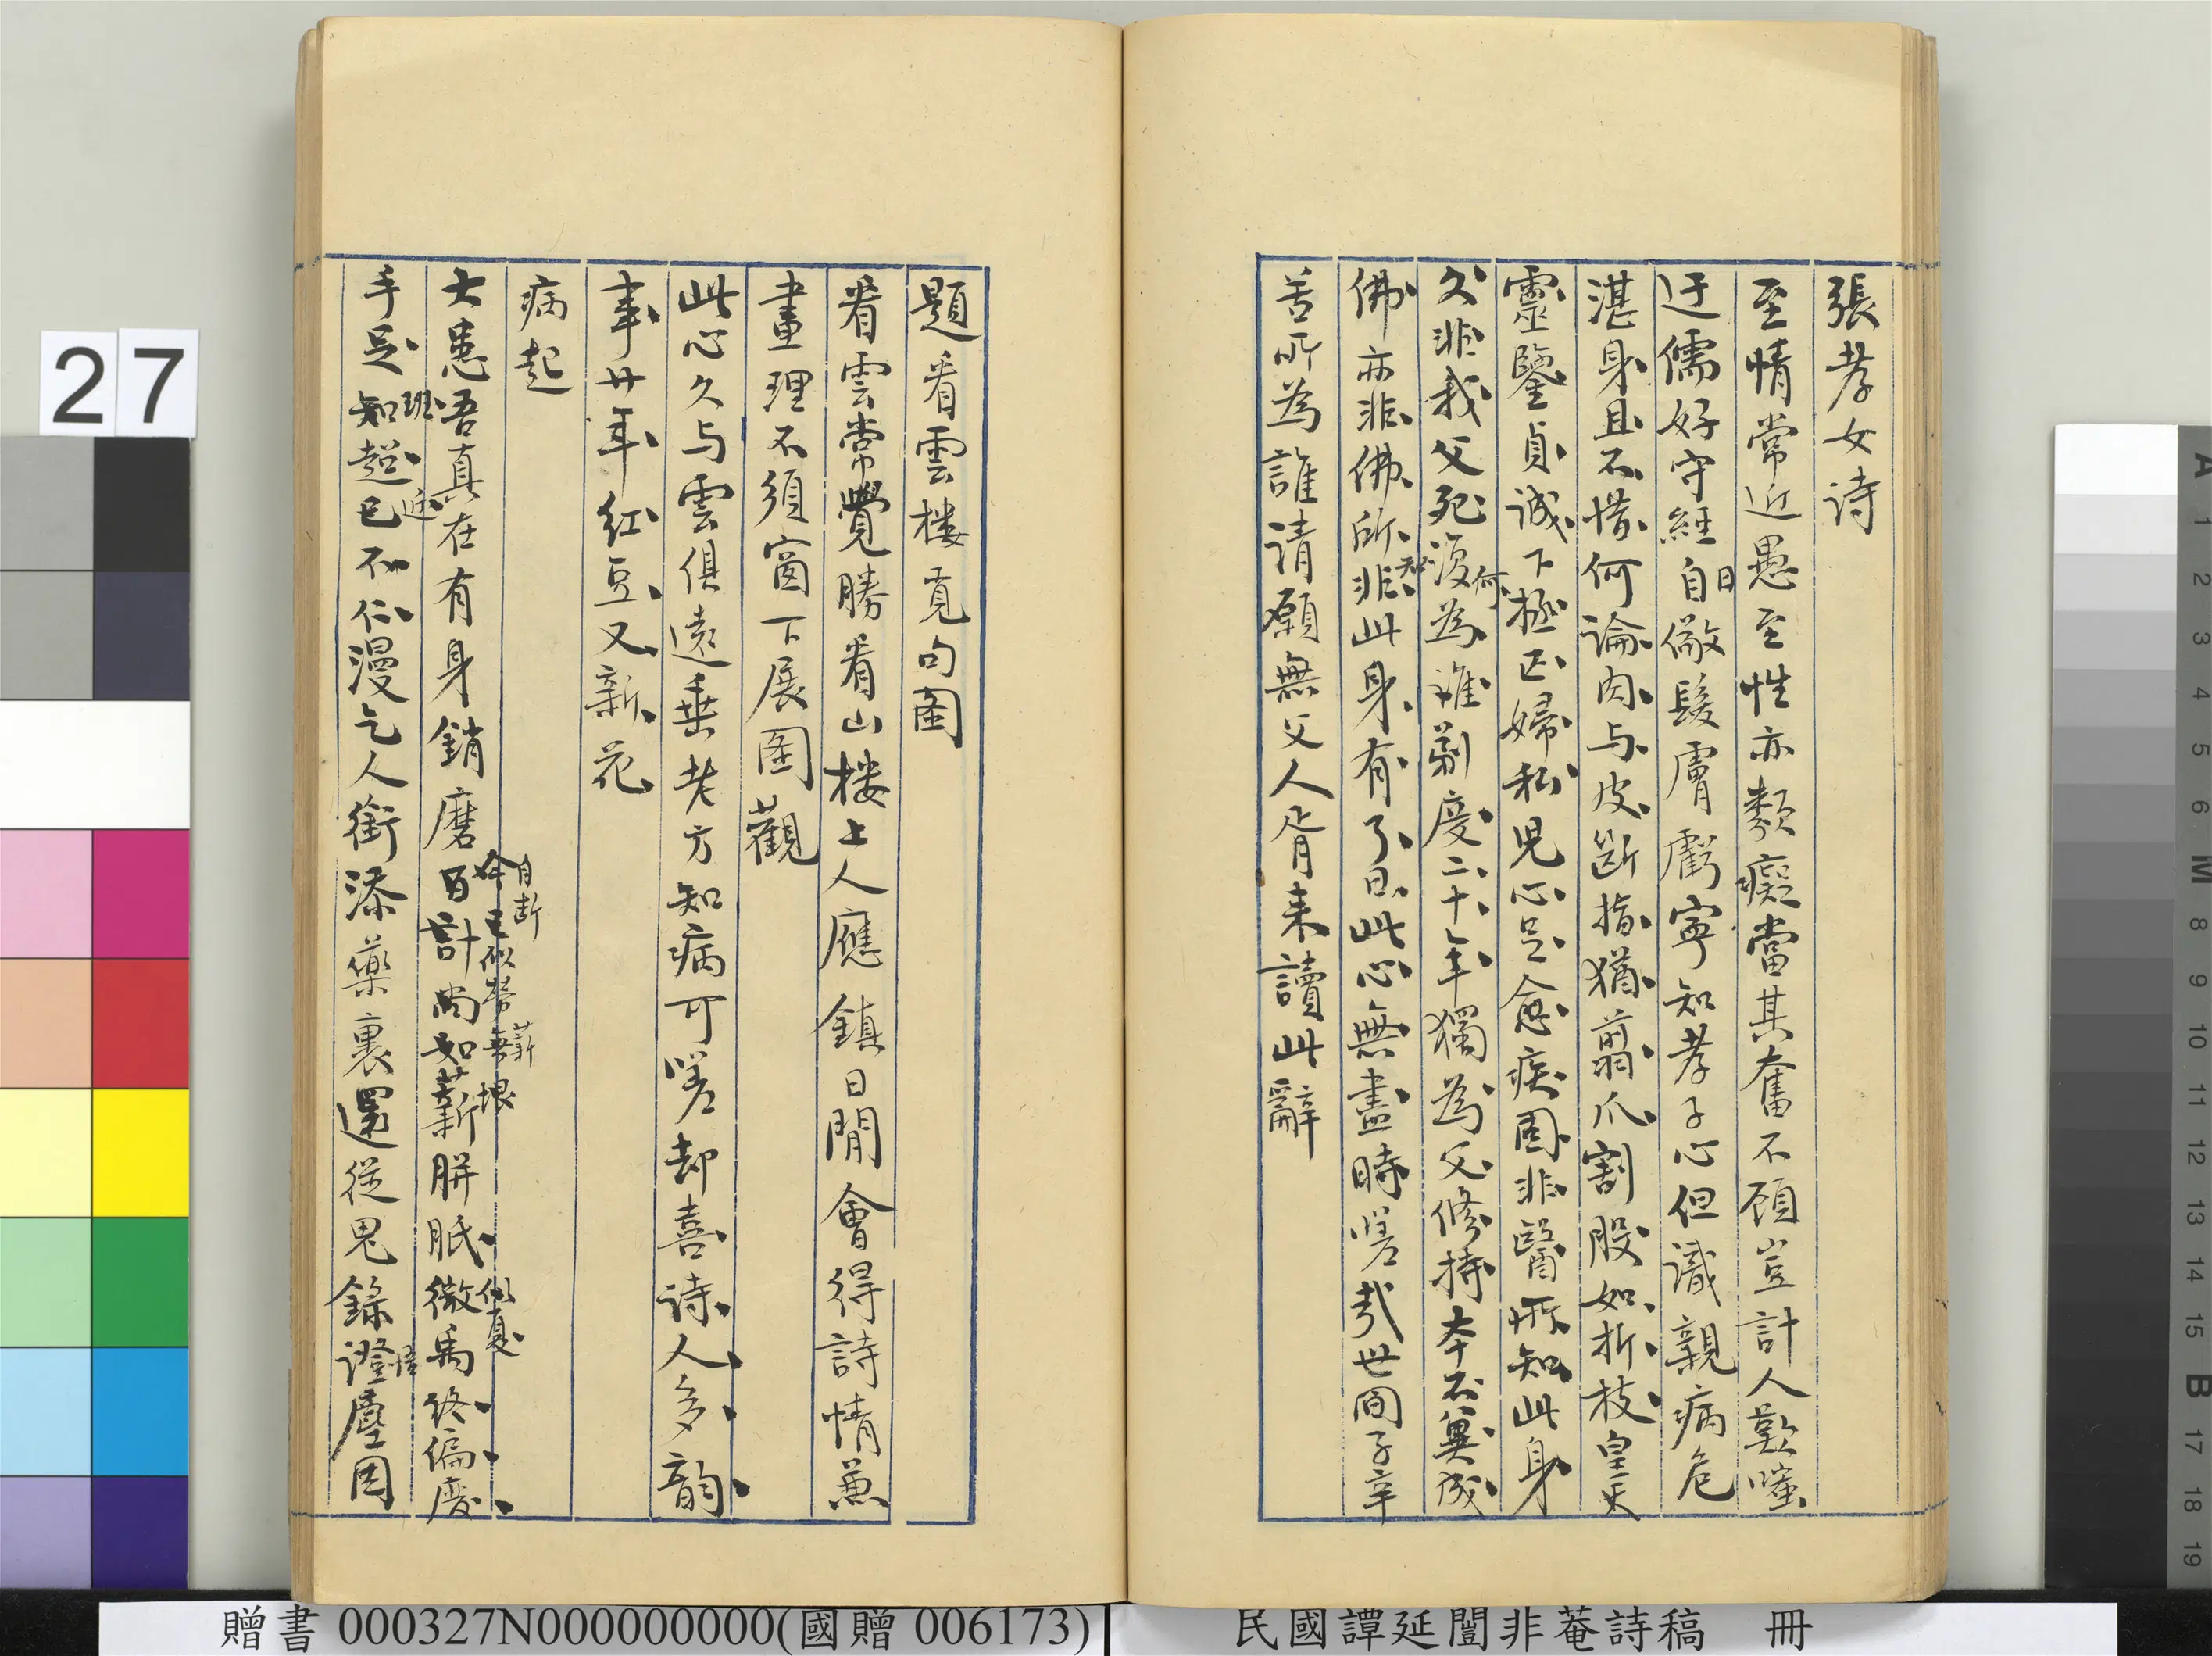 張孝女詩
至情常近愚至性亦類癡當其奮不顧豈計人歎嗤
迂儒好守經日自儆髮膚虧寧知孝子心但識親病危
湛身且不惜何論肉与皮斷指猶翦爪割股如折枝皇天
靈鑒貞誠下拯匹婦私兒心足愈疾固非醫所知此身
久非我父死復何為誰剃度二十年獨為父修持本不冀成
佛亦非佛所非此身有了日此心無盡時嗟哉世間子辛
苦所為誰請願無父人胥来讀此辭
題看雲樓覓句圖
看雲常覺勝看山樓上人應鎮日閒會得詩情兼
畫理不須窗下展圖觀
此心久与雲俱遠垂老方知病可嗟却喜詩人多韻
事廿年紅豆又新花
病起
自斷
今已似勞無薪垠
似夏
大患吾真在有身銷磨百計尚如薪胼胝微禹終偏廢
班
迹
悟
手足知超已不仁漫乞人銜添藥裹還從鬼錄證塵因
27
A 1 2 3 4 5 6 M 8 9 10 11 12 13 14 15 B 17 18 19
贈書 000327N000000000(國贈 006173)
民國譚延闓非菴詩稿 冊